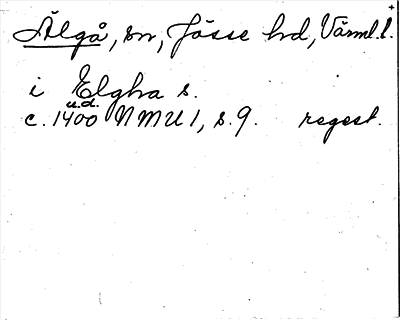 Älgå, sn, Jösse hd, Värml. l.
i Elgha s.
u.d.
c. 1400 NMU 1, s. 9. regest.